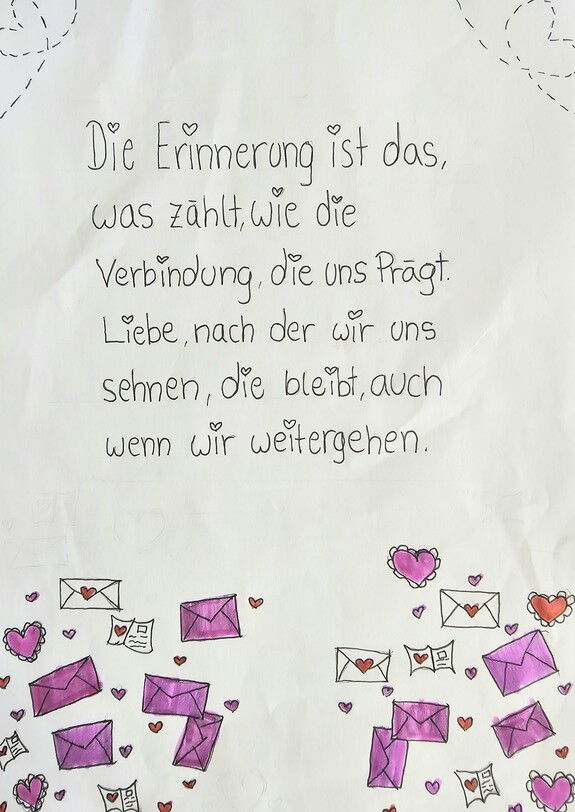 Die Erinnerung ist das,
was zählt, wie die
Verbindung, die uns Prägt.
Liebe, nach der wir uns
sehnen, die bleibt, auch
wenn wir weitergehen.